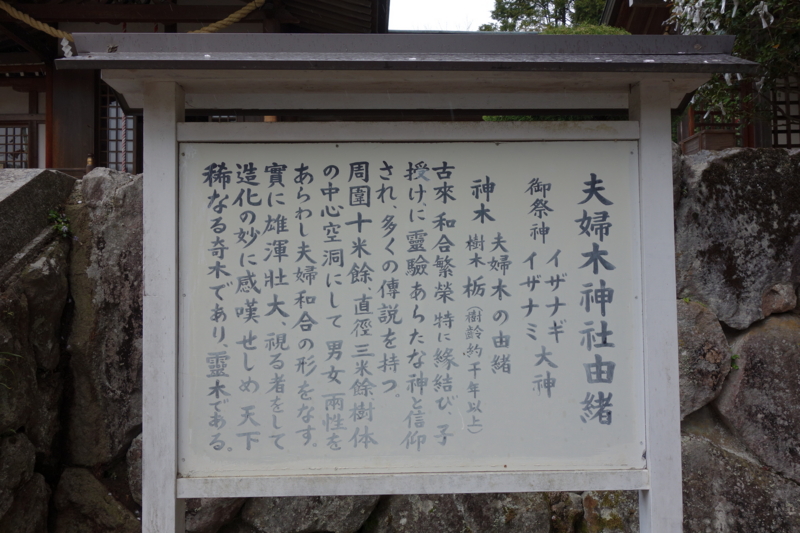 夫婦木神社由緒
御祭神 イザナギ イザナミ 大神
夫婦木の由緒
神木 樹木 栃(樹齢約千年以上)
古來和合繁榮特に縁結び、子
授けに靈驗あらたな神と信仰
され、多くの傳説を持つ。
周圍十米餘、直徑三米餘樹体
の中心空洞にして男女両性を
あらわし夫婦和合の形をなす。
實に雄渾壯大、視る者をして
造化の妙に感嘆せしめ天下
稀なる奇木であり、靈木である。